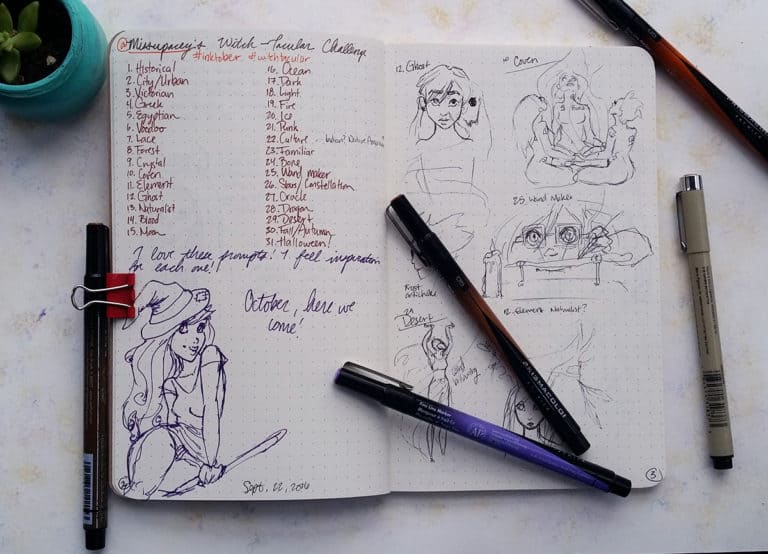 @Missupacey's Witch-Tacular Challenge
#inktober #witchtacular
1. Historical
2. City/Urban
3. Victorian
4. Greek
5. Egyptian
6. Voodoo
7. Lace
8. Forest
9. Crystal
10. Coven
11. Element
12. Ghost
13. Naturalist
14. Blood
15. Moon
16. Ocean
17. Dark
18. Light
19. Fire
20. Ice
21. Punk
22. Culture
23. Familiar
24. Bone
25. Wand maker
26. Stars/Constellation
27. Oracle
28. Dragon
29. Desert
30. Fall/Autumn
31. Halloween!
I love these prompts! I feel inspiration
for each one!
October, here we
come!
Sept. 22, 2016
12. Ghost
10. Coven
25. Wand Maker
Element Naturalist?
Desert
3
PRISMACOLOR
Fine Line Marker